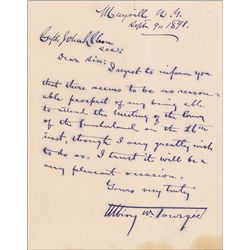 Mayville N.Y.
Sept. 9th 1891.
Capt. John
Sec:
Dear Sir: I regret to inform you
that there seems to be no reason-
able prospect of my being able
to attend the meeting of the Army
of the Cumberland on the 16th
inst, though I very greatly wish
to do so. I trust it will be a
very pleasant occasion.
Yours very truly
Albion W. Tourgee